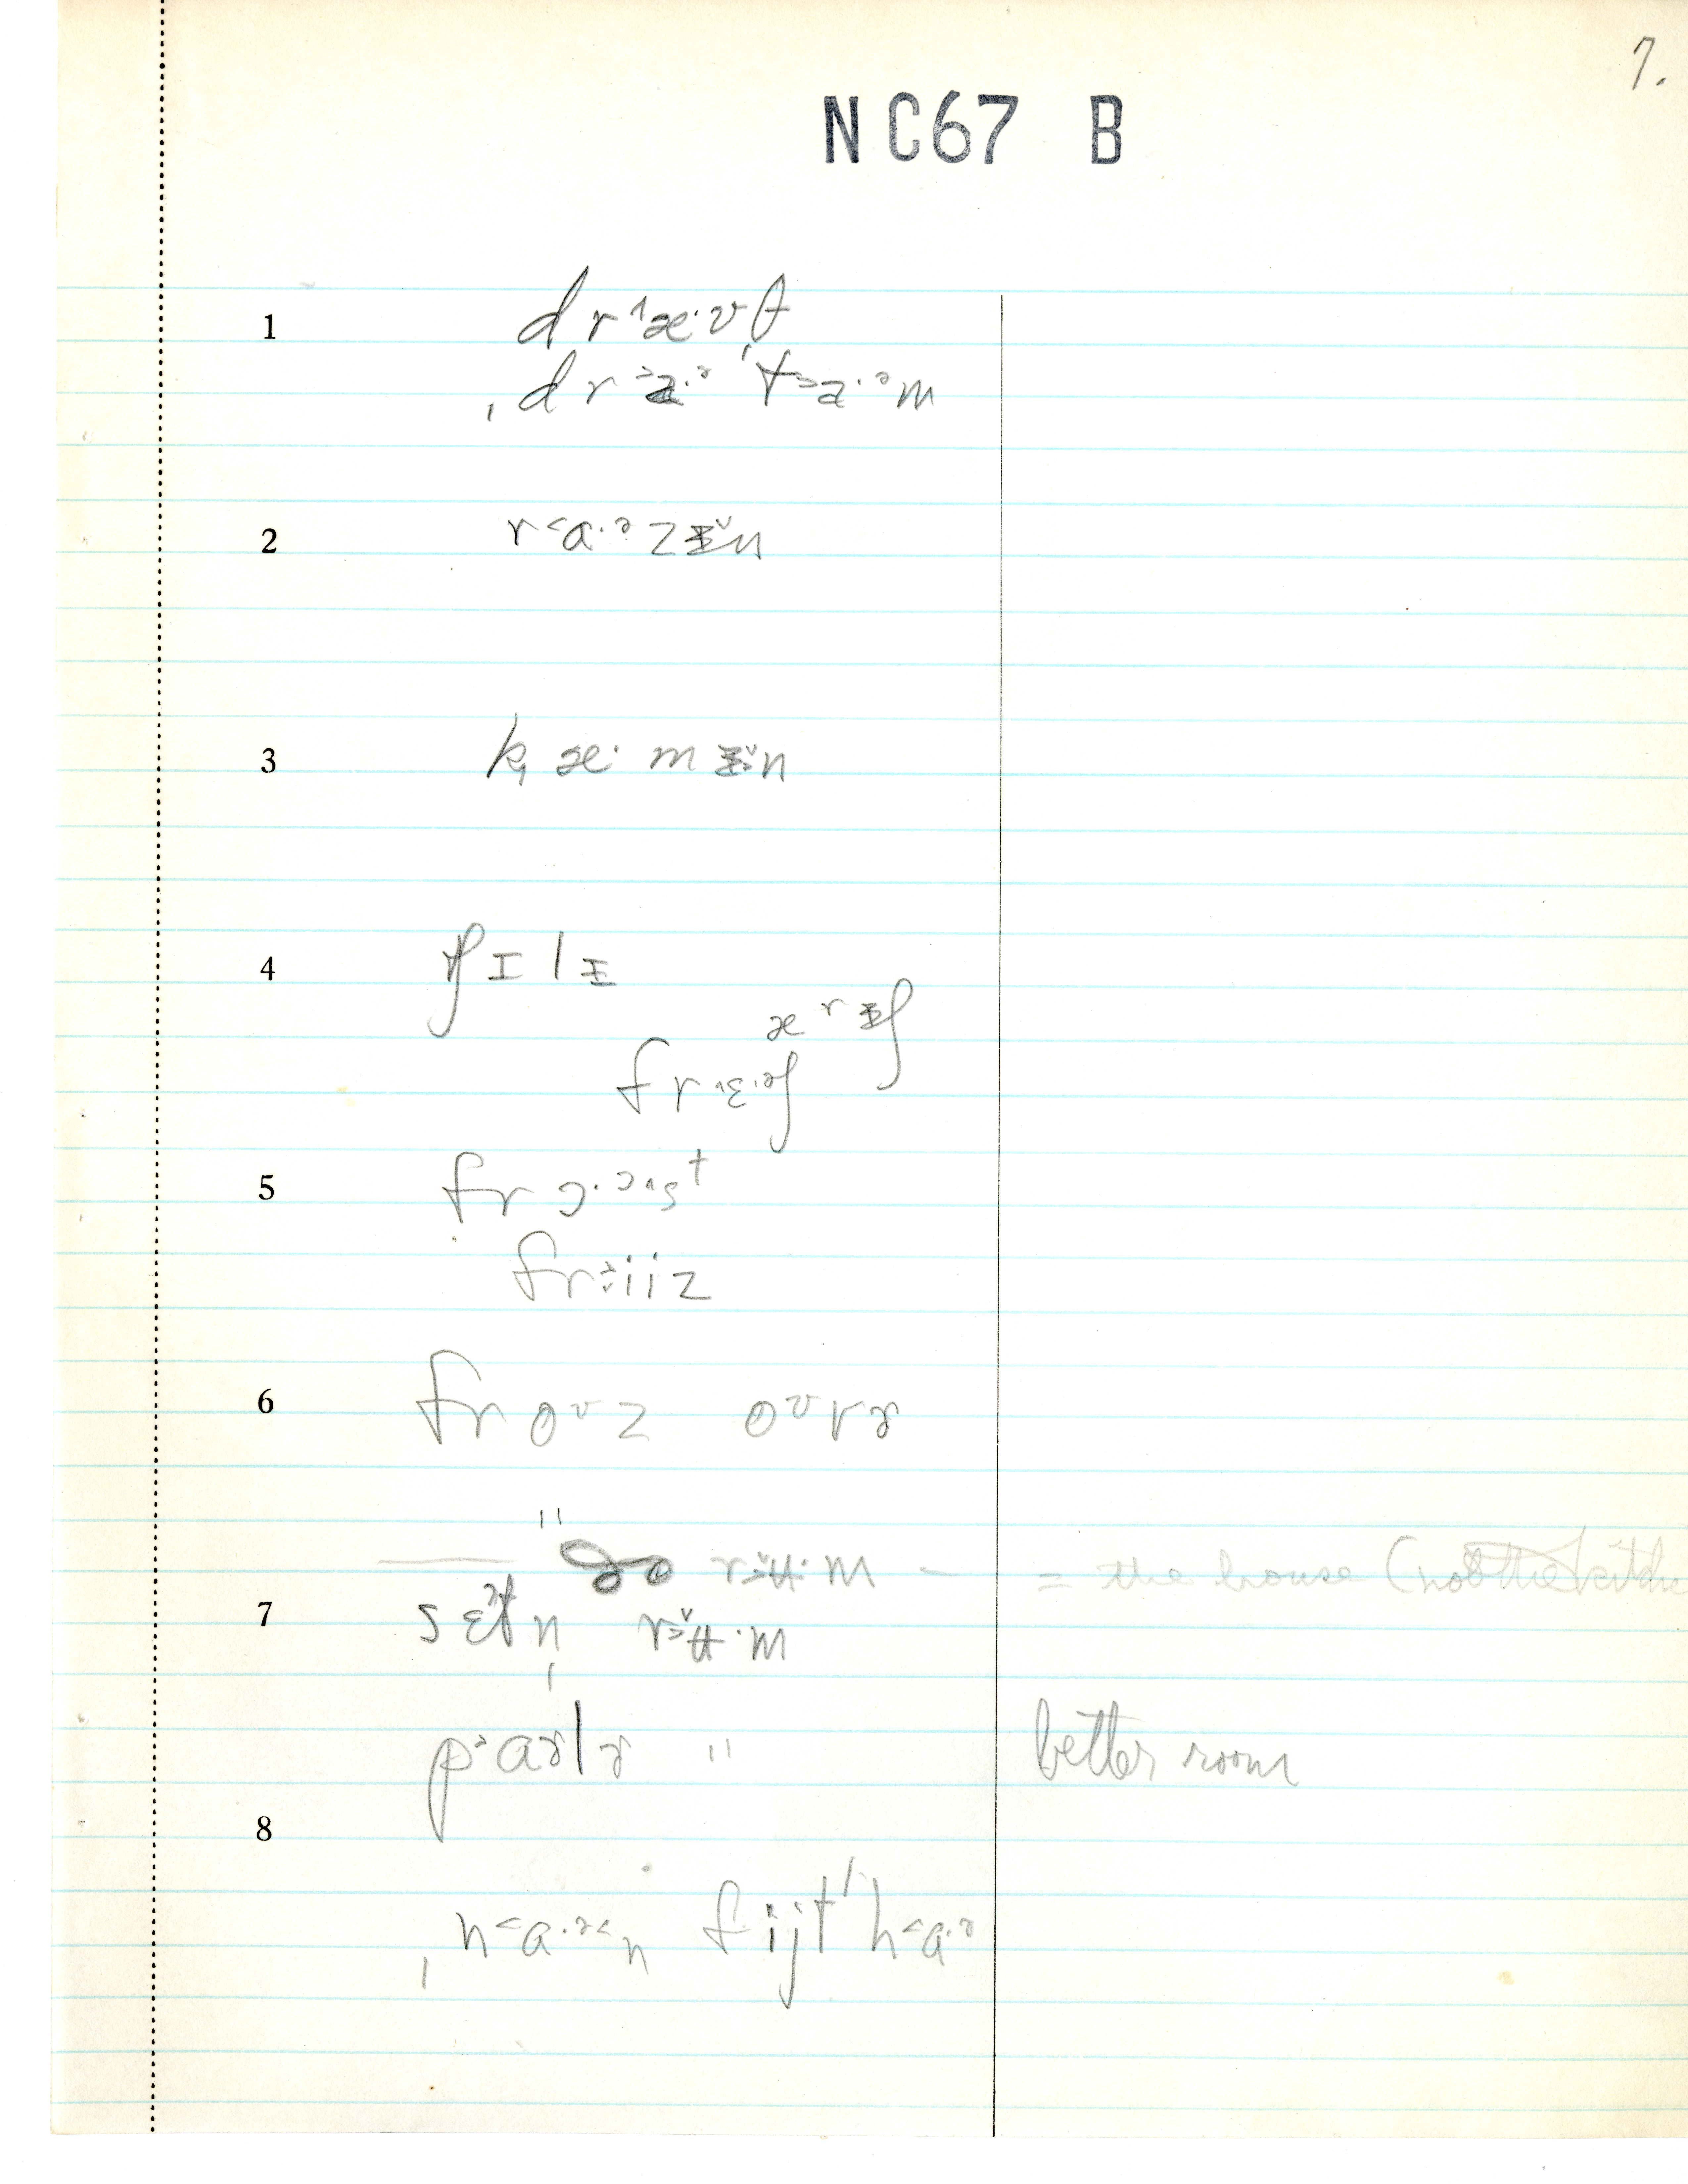 7.
NC67 B
1 dr˄æ·vθ
ˌdr˃a·ᵊ ˈt˃a·ᵊm
2 r˂ɑ·ᵊzɨ̌n
3 k̟æ·mɨ̌n
4 ʧɪlɪ
ærɨʃ
fr˄ɛ·ᵊʃ
5 frɔ·ᵓ˄st
fr˃iiz
6 froᶷz oᶷvɚ
" r˃ʉ̌·m — = the house (not the kitche
7 sɛtn̩ r˃ʉ̌·m
p˃ɑɚlɚ " better room
8
ˌn˂ɑ·ᵊ˂n fijt ˈh˂ɑ·ᵊ